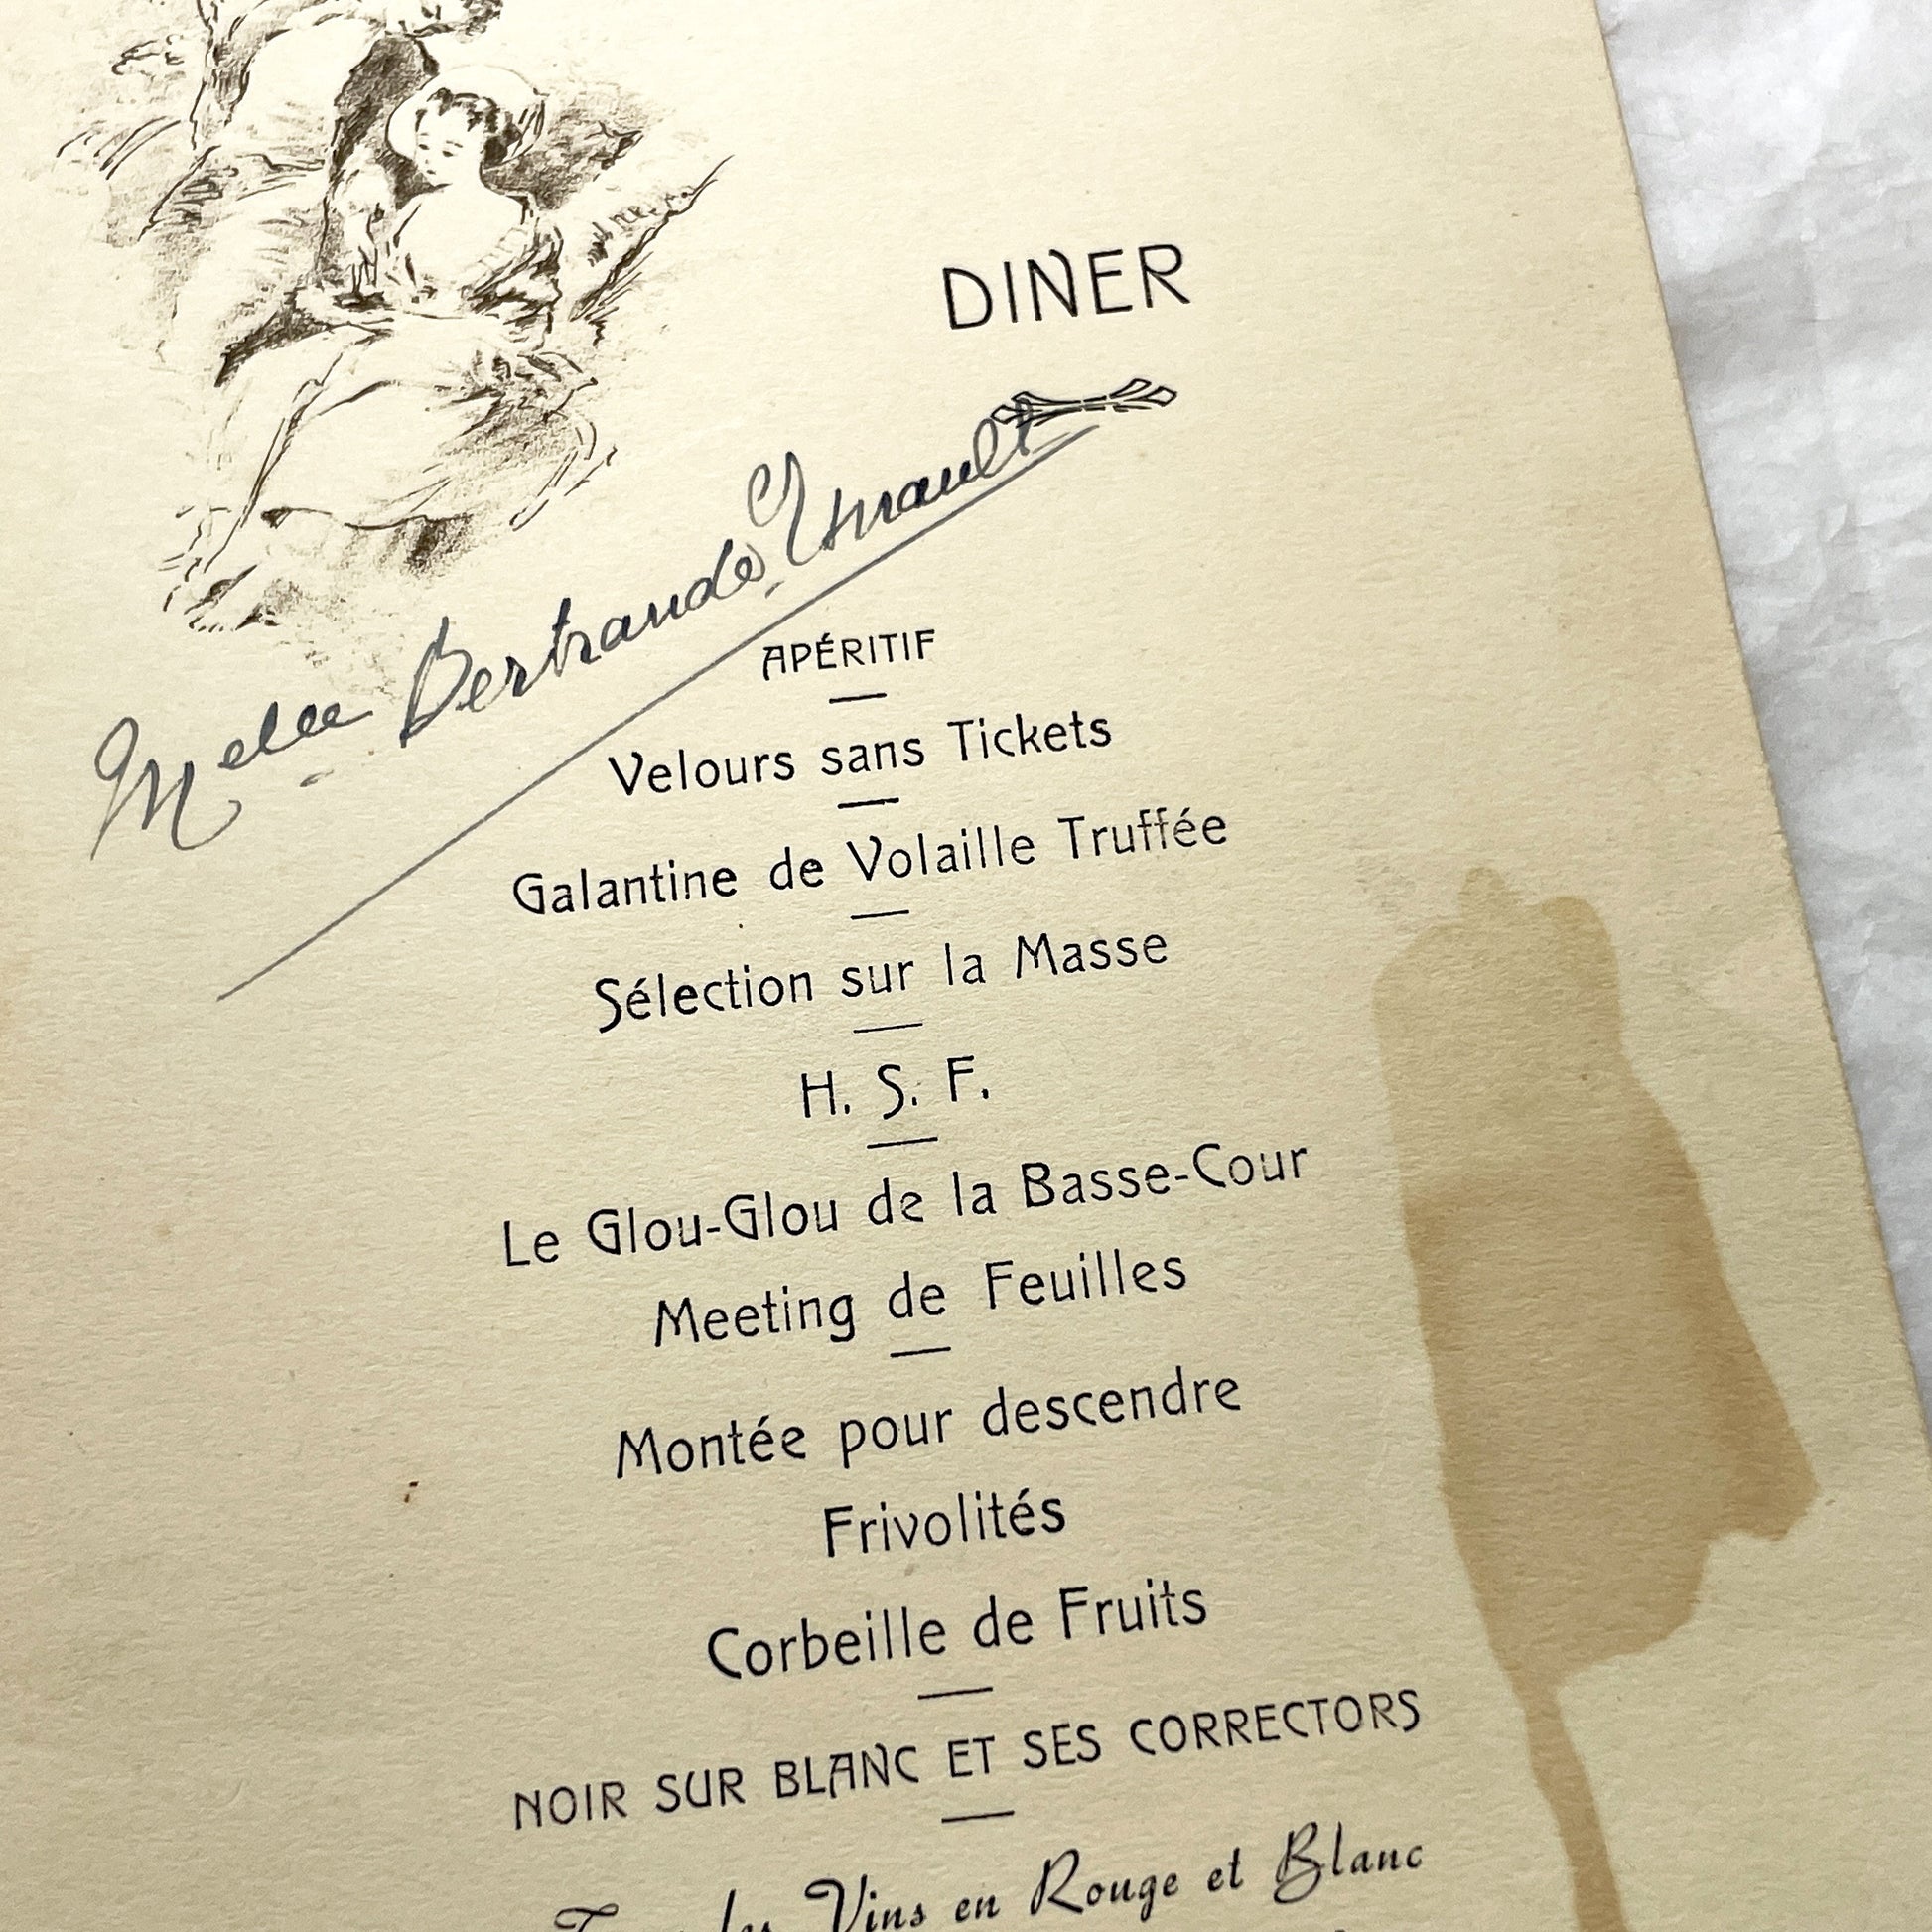 DINER
Melle Bertrande
APÉRITIF
Velours sans Tickets
Galantine de Volaille Truffée
Sélection sur la Masse
H. S. F.
Le Glou-Glou de la Basse-Cour
Meeting de Feuilles
Montée pour descendre
Frivolités
Corbeille de Fruits
NOIR SUR BLANC ET SES CORRECTORS
les Vins en Rouge et Blanc